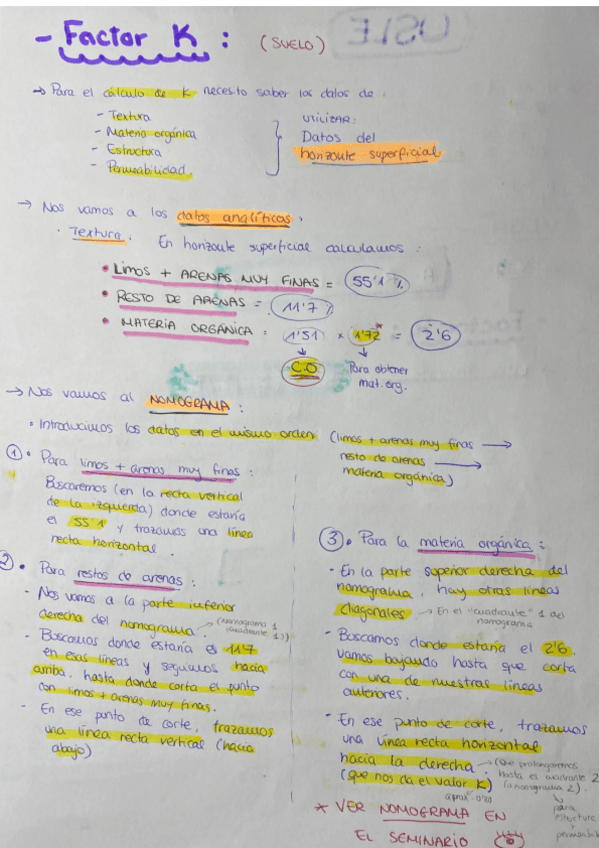 - Factor K : (SUELO)
USLE
→ Para el cálculo de K necesito saber los datos de :
- Textura
- Materia orgánica
- Estructura
- Permeabilidad
UTILIZAR:
Datos del
horizonte superficial
→ Nos vamos a los datos analíticos.
· Textura. En horizonte superficial calculamos :
• LIMOS + ARENAS MUY FINAS = 55'1 %
• RESTO DE ARENAS = 11'7 %
• MATERIA ORGÁNICA : 1'51 * 1'72 = 2'6
C.O. Para obtener
mat. org.
→ Nos vamos al NOMOGRAMA :
• Introducimos los datos en el mismo orden (limos + arenas muy finas →
resto de arenas →
materia orgánica)
① • Para limos + arenas muy finas :
Buscaremos (en la recta vertical
de la izquierda) donde estaría
el 55'1 y trazamos una línea
recta horizontal .
2 • Para restos de arenas :
- Nos vamos a la parte inferior
derecha del nomograma. → (nomograma 1
(cuadrante 1))
- Buscamos donde estaría es 11'7
en esas líneas y seguimos hacia
arriba, hasta donde corta el punto
con limos + arenas muy finas.
- En ese punto de corte, trazamos
una línea recta vertical (hacia
abajo)
③ • Para la materia orgánica :
- En la parte superior derecha del
nomograma, hay otras líneas
diagonales → En el "cuadrante" 1 del
nomograma
- Buscamos donde estaría el 2'6,
vamos bajando hasta que corta
con una de nuestras líneas
anteriores.
- En ese punto de corte, trazamos
una línea recta horizontal
hacia la derecha. → (Que prolongaremos
(que nos da el valor K) hasta el cuadrante 2
(o nomograma 2).
aprox 0'20
para
estructura
y
permeabil
* VER NOMOGRAMA EN
EL SEMINARIO